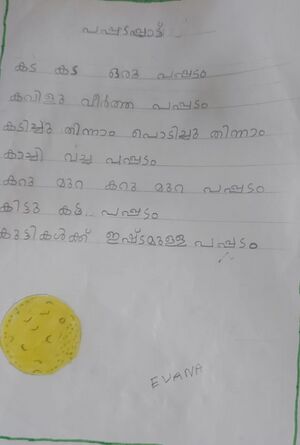 പപ്പടപ്പാട്ട്
കട കട ഒരു പപ്പടം
കവിളു വീർത്ത പപ്പടം
കടിച്ചു തിന്നാം പൊടിച്ചു തിന്നാം
കാച്ചി വച്ച പപ്പടം
കറു മുറ കറു മുറ പപ്പടം
കിട്ടു കട.. പപ്പടം
കുട്ടികൾക്ക് ഇഷ്ടമുള്ള പപ്പടം
EVANA